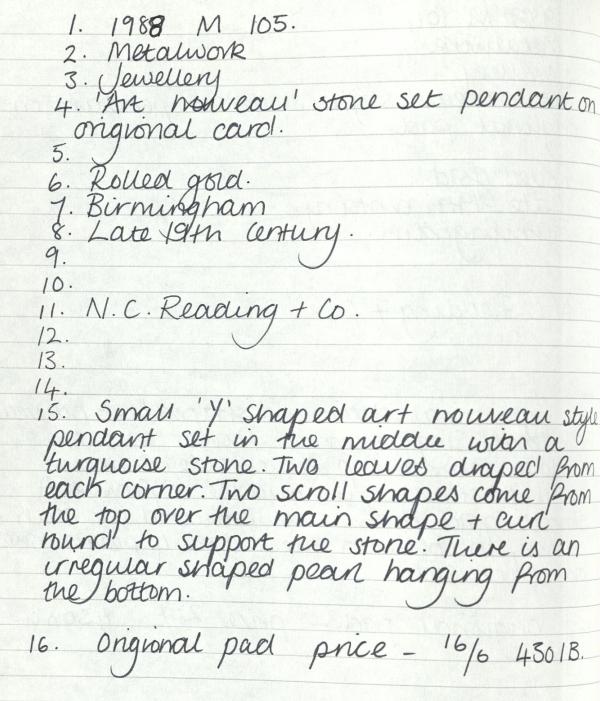 1. 1988 M 105.
2. Metalwork
3. Jewellery
4. 'Art nouveau' stone set pendant on
origional card.
5.
6. Rolled gold.
7. Birmingham
8. Late 19th century.
9.
10.
11. N.C. Reading + Co.
12.
13.
14.
15. Small 'Y' shaped art nouveau style
pendant set in the middle with a
turquoise stone. Two leaves draped from
each corner. Two scroll shapes come from
the top over the main shape + curl
round to support the stone. There is an
irregular shaped pearl hanging from
the bottom.
16. Origional pad price - 16/6 4301B.